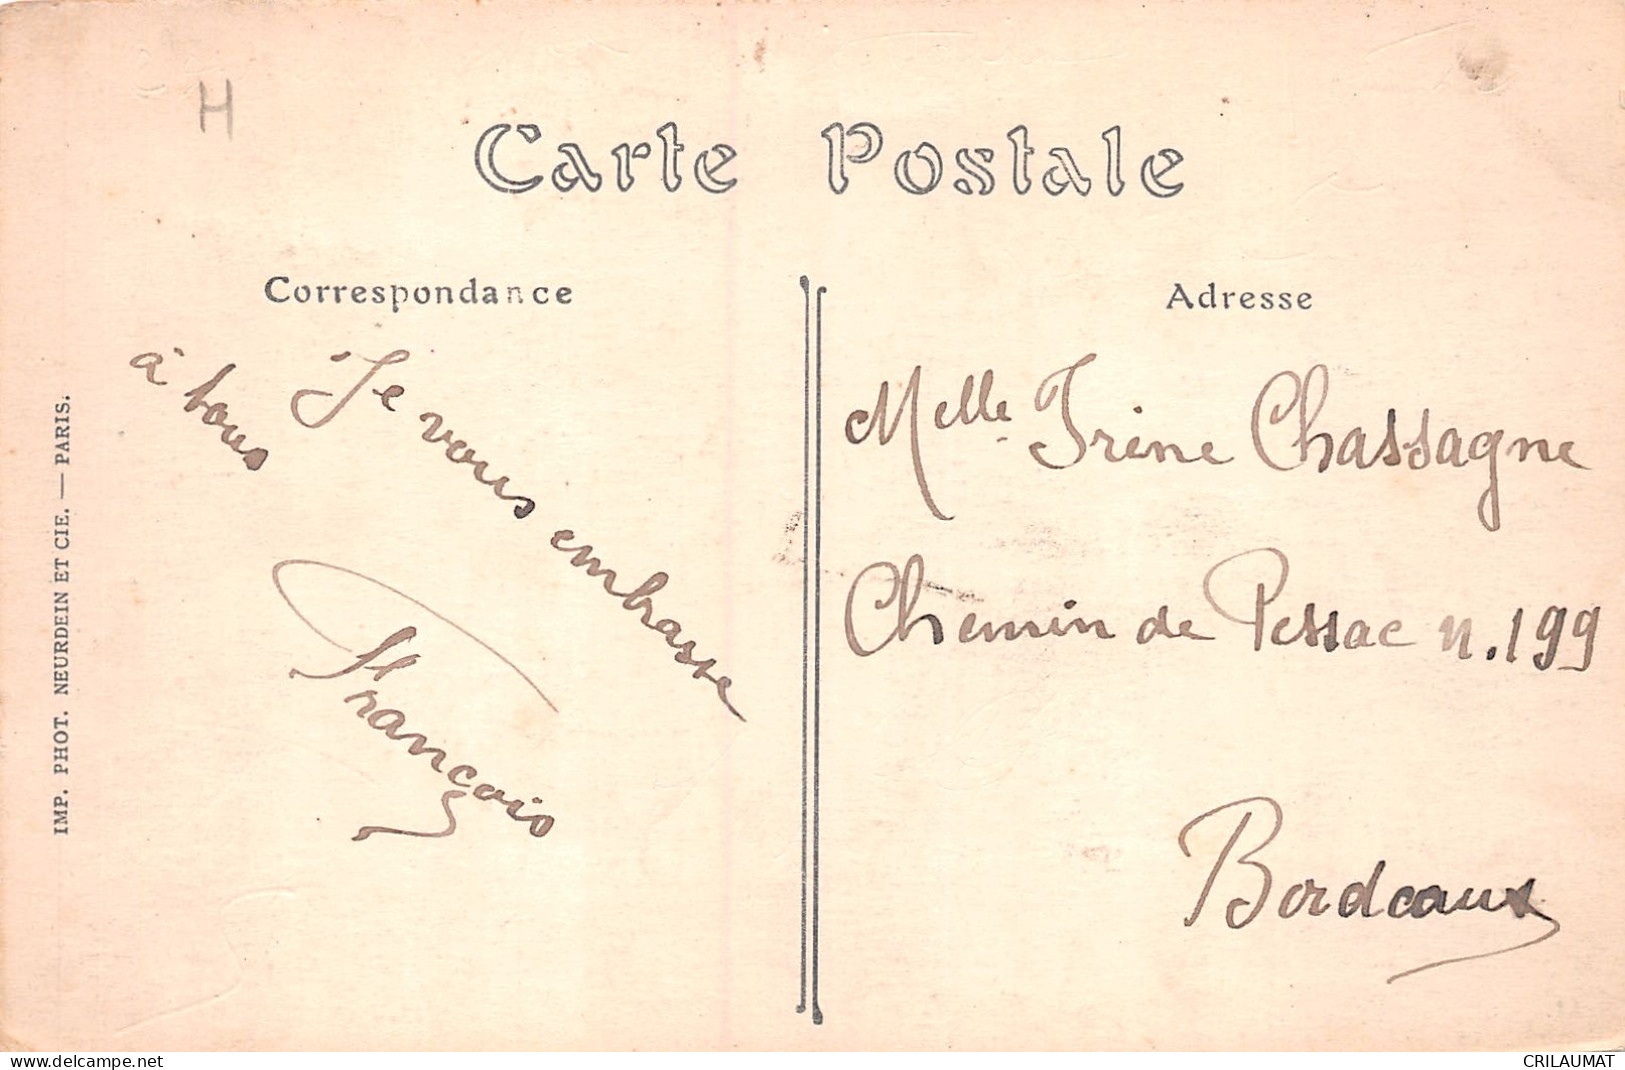 H
Carte Postale
Correspondance
Je vous embrasse
à tous
François
Adresse
Melle. Irène Chassagne
Chemin de Pessac n. 199
Bordeaux
IMP. PHOT. NEURDEIN ET CIE. — PARIS.
www.delcampe.net
CRILAUMAT